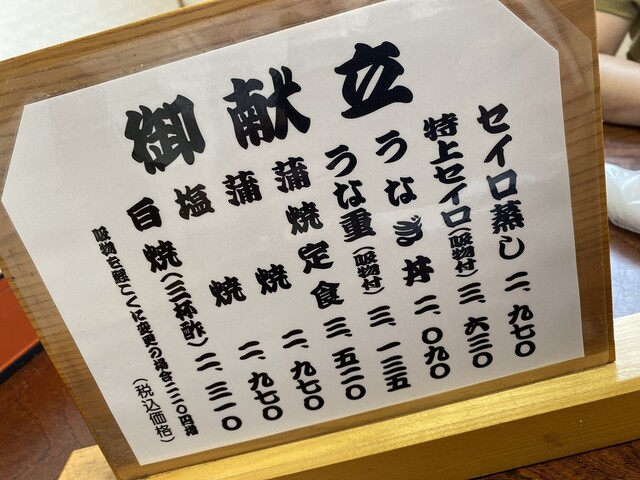 御献立
セイロ蒸し 二、九七〇
特上セイロ(吸物付) 三、六三〇
うなぎ丼 二、〇九〇
うな重(吸物付) 三、一三五
蒲焼定食 三、五二〇
蒲焼 二、九七〇
塩焼 二、九七〇
白焼(三杯酢) 二、三一〇
吸物を鯉こくに変更の場合二二〇円増
(税込価格)